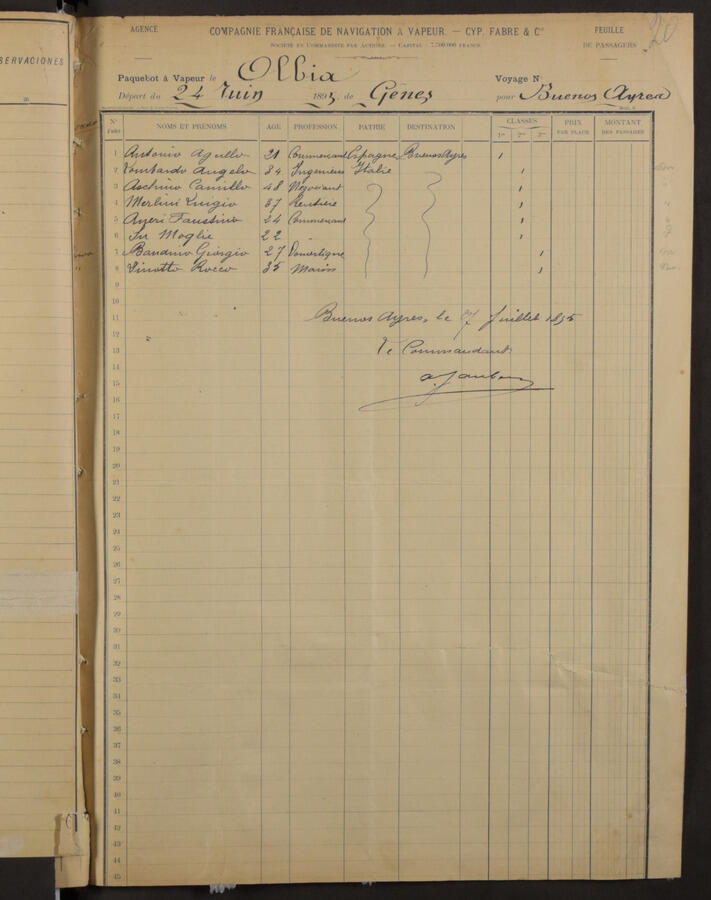 SERVACIONES
AGENCE
COMPAGNIE FRANÇAISE DE NAVIGATION A VAPEUR. — CYP. FABRE & Cie
FEUILLE
SOCIÉTÉ EN COMMANDITE PAR ACTIONS — CAPITAL : 7.500.000 FRANCS
DE PASSAGERS
20
Paquebot à Vapeur le Olbia Voyage N°
Départ du 24 Juin 1895 de Genes pour Buenos Ayres
Nos d'ordre NOMS ET PRÉNOMS AGE PROFESSION PATRIE DESTINATION CLASSES PRIX PAR PLACE MONTANT DES PASSAGES
1re 2me 3me
1 Antonio Agullo 21 Commercant Espagne Buenos Ayres 1
2 Lombardo Angelo 34 Ingenieur Italie 1
3 Aschino Camillo 48 Negociant 1
4 Merlini Luigio 37 1
5 Faustino 24 Commercant 1
6 Sa Moglie 22 " 1
7 Bandino Giorgio 27 Domestique 1
8 Vinotto Rocco 35 1
9
10
11 Buenos Ayres, le 17 Juillet 1895
12
13 Le Commandant
14
15
16
17
18
19
20
21
22
23
24
25
26
27
28
29
30
31
32
33
34
35
36
37
38
39
40
41
42
43
44
45